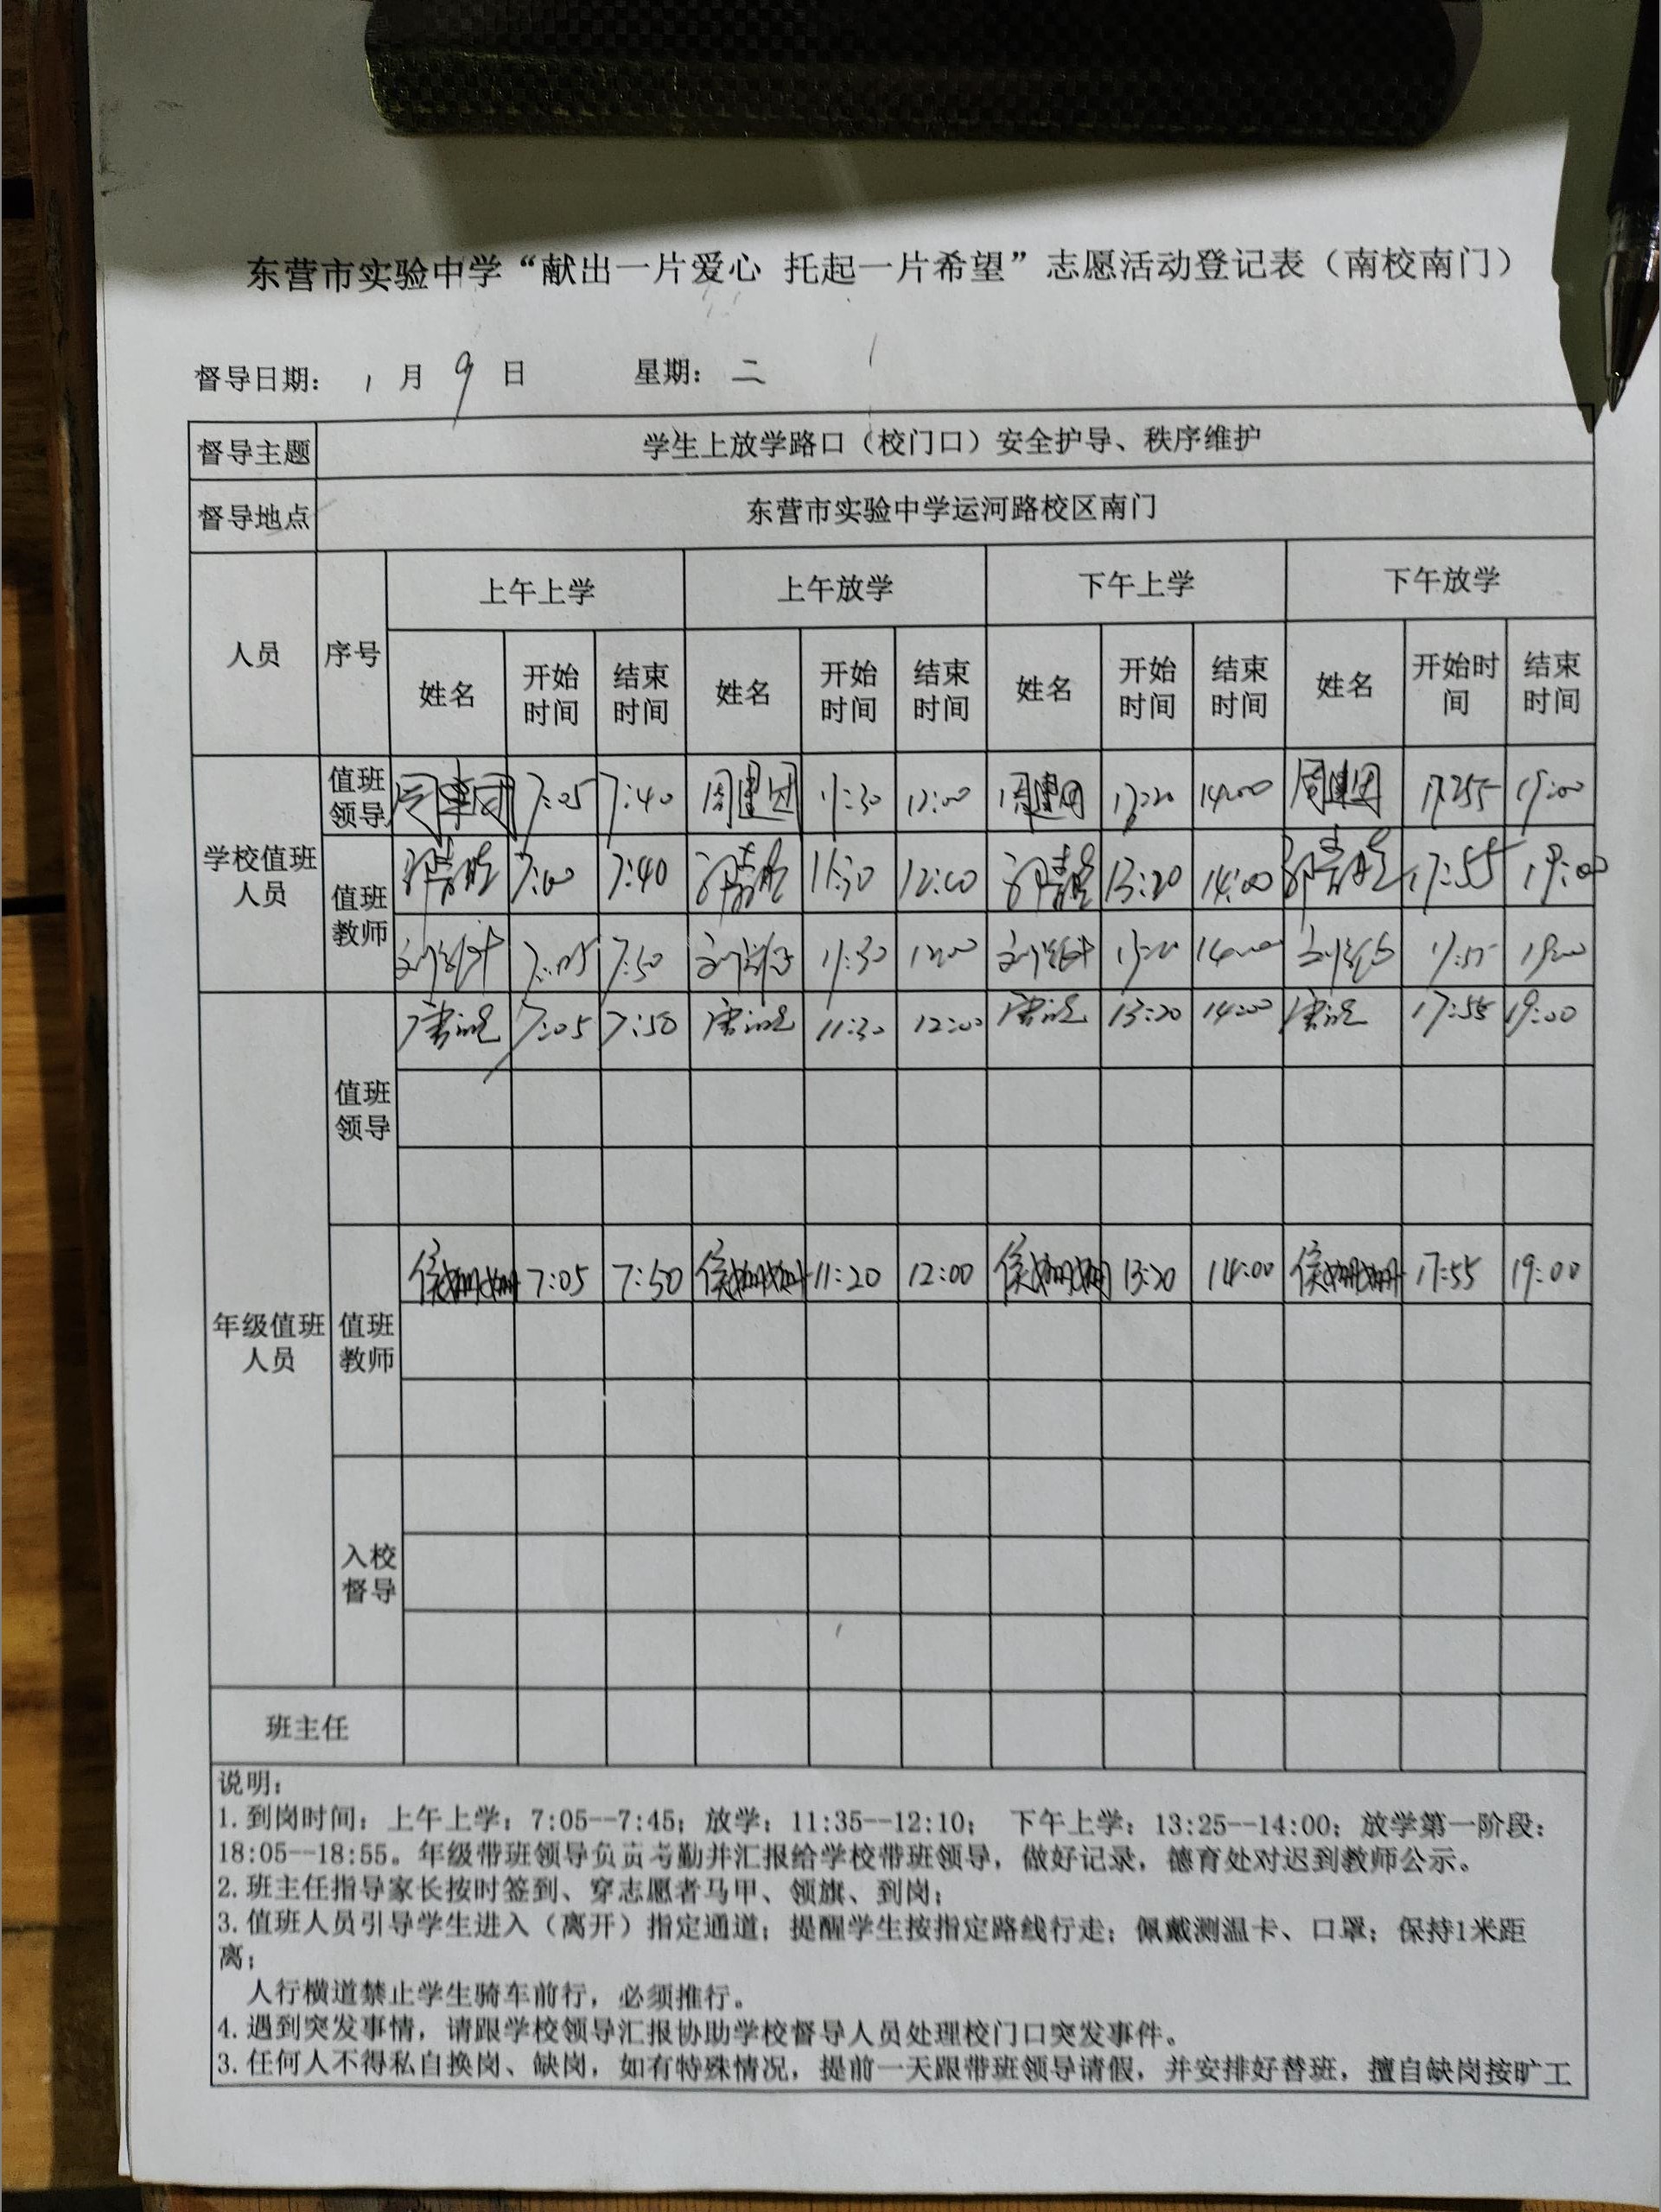 东营市实验中学“献出一片爱心 托起一片希望”志愿活动登记表（南校南门）
督导日期： 1 月 9 日 星期： 二
督导主题 学生上放学路口（校门口）安全护导、秩序维护
督导地点 东营市实验中学运河路校区南门
人员 序号 上午上学 上午放学 下午上学 下午放学
姓名 开始时间 结束时间 姓名 开始时间 结束时间 姓名 开始时间 结束时间 姓名 开始时间 结束时间
学校值班人员
值班领导 周建团 7:05 7:40 周建团 11:30 12:00 周建团 13:20 14:00 周建团 17:55 19:00
值班教师 7:00 7:40 11:30 12:00 13:20 14:00 17:55 19:00
7:05 7:50 11:30 12:00 13:20 14:00 17:55 19:00
年级值班人员
值班领导 7:05 7:50 11:30 12:00 13:20 14:00 17:55 19:00
值班教师 侯姗姗 7:05 7:50 侯姗姗 11:20 12:00 侯姗姗 13:20 14:00 侯姗姗 17:55 19:00
入校督导
班主任
说明：
1.到岗时间：上午上学：7:05--7:45；放学：11:35--12:10； 下午上学：13:25--14:00；放学第一阶段：
18:05--18:55。年级带班领导负责考勤并汇报给学校带班领导，做好记录，德育处对迟到教师公示。
2.班主任指导家长按时签到、穿志愿者马甲、领旗、到岗；
3.值班人员引导学生进入（离开）指定通道；提醒学生按指定路线行走；佩戴测温卡、口罩；保持1米距
离；
人行横道禁止学生骑车前行，必须推行。
4.遇到突发事情，请跟学校领导汇报协助学校督导人员处理校门口突发事件。
3.任何人不得私自换岗、缺岗，如有特殊情况，提前一天跟带班领导请假，并安排好替班，擅自缺岗按旷工